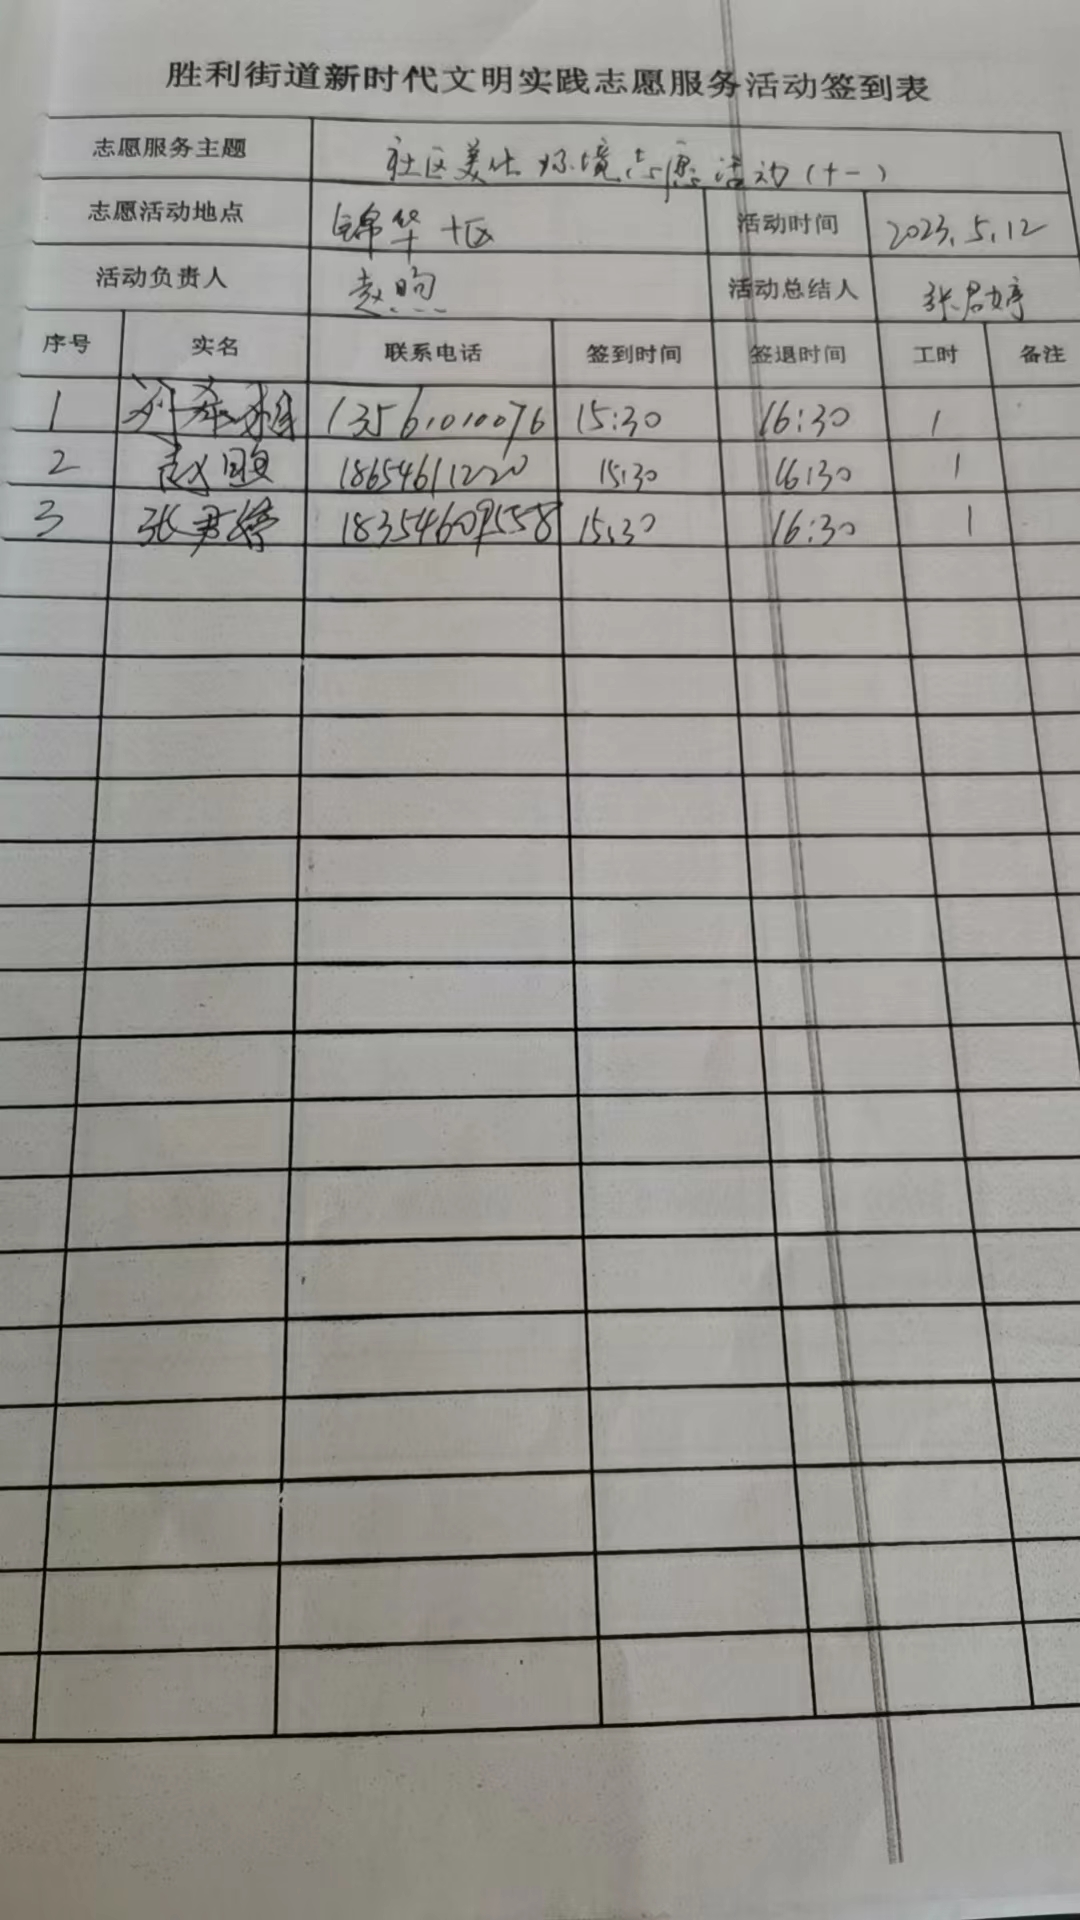 胜利街道新时代文明实践志愿服务活动签到表
志愿服务主题 社区美化环境志愿活动(十一)
志愿活动地点 锦华十区 活动时间 2023.5.12
活动负责人 赵煦 活动总结人 张君婷
序号 实名 联系电话 签到时间 签退时间 工时 备注
1 13561010076 15:30 16:30 1
2 赵煦 18654611220 15:30 16:30 1
3 张君婷 18354609558 15:30 16:30 1